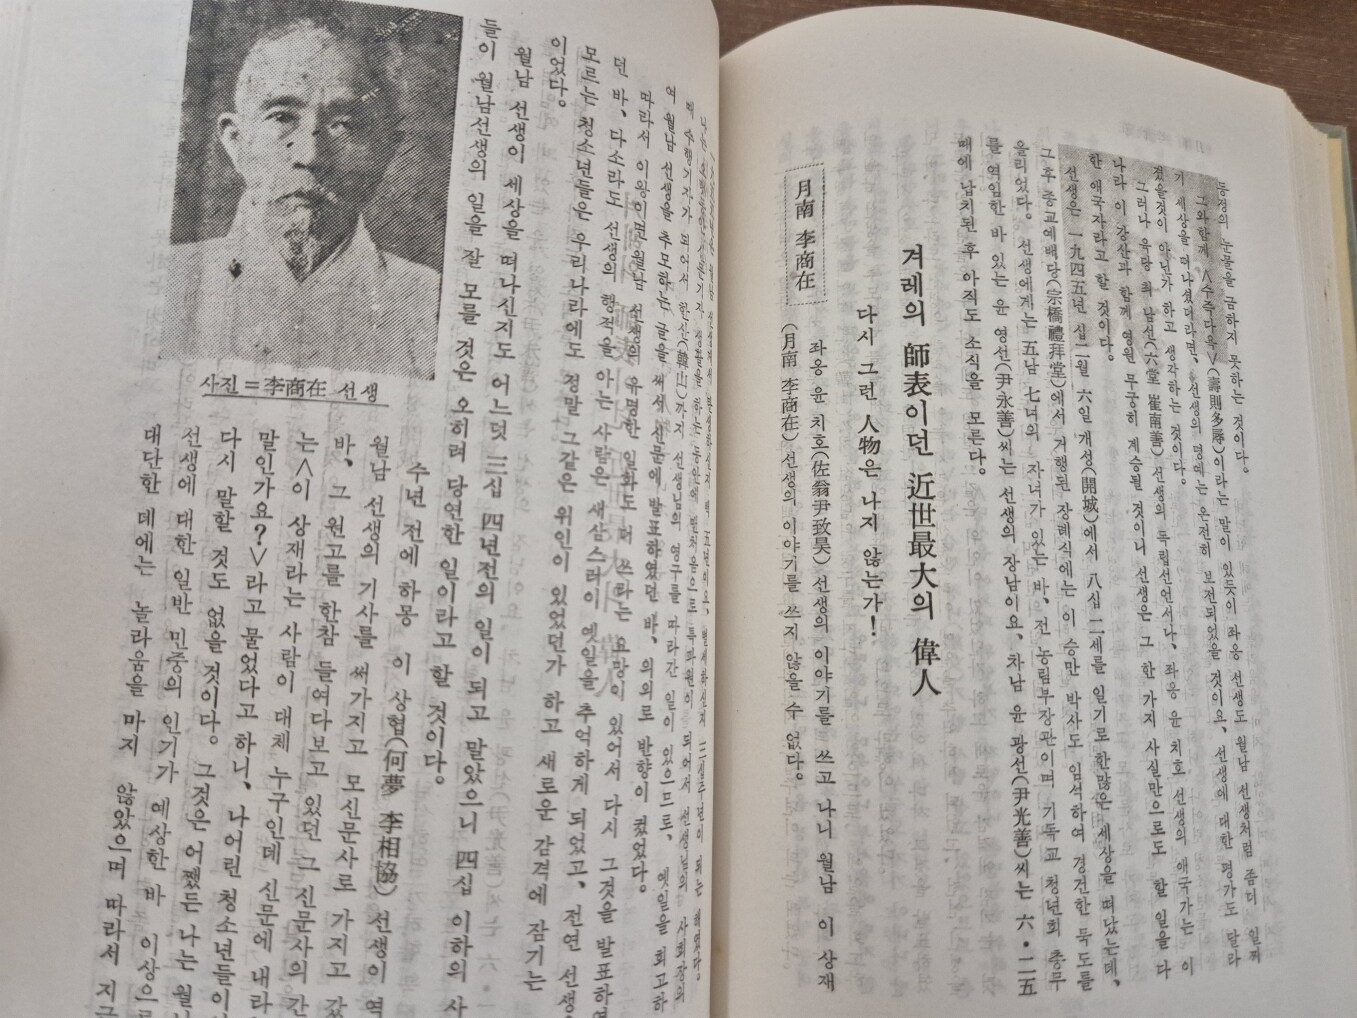 동정의 눈물을 금하지 못하는 것이다.
그와함께 <수즉다욕>(壽則多辱)이라는 말이 있듯이 좌옹 선생도 월남 선생처럼 좀더 일찌
기 세상을 떠나셨더라면, 선생의 명예는 온전히 보전되었을 것이요, 선생에 대한 평가도 달라
졌을것이 아닌가 하고 생각하는 것이다.
그러나 육당 최 남선(六堂 崔南善) 선생의 독립선언서나, 좌옹 윤 치호 선생의 애국가는 이
나라 이 강산과 함께 영원 무궁히 계승될 것이니 선생은 그 한 가지 사실만으로도 할 일을 다
한 애국자라고 할 것이다.
선생은 一九四五년 십二월 六일 개성(開城)에서 八십 二세를 일기로 한많은 세상을 떠났는데,
그후 종교예배당(宗橋禮拜堂)에서 거행된 장례식에는 이 승만 박사도 임석하여 경건한 묵도를
올리었다. 선생에게는 五남 七녀의 자녀가 있는 바, 전 농림부장관이며 기독교 청년회 총무
를 역임한 바 있는 윤 영선(尹永善)씨는 선생의 장남이요, 차남 윤 광선(尹光善)씨는 六·二五
때에 납치된 후 아직도 소식을 모른다.
겨레의 師表이던 近世最大의 偉人
다시 그런 人物은 나지 않는가!
月南 李商在
좌옹 윤 치호(佐翁尹致昊) 선생의 이야기를 쓰고 나니 월남 이 상재
(月南 李商在) 선생의 이야기를 쓰지 않을 수 없다.
때 수행기자가 되어서 한산(韓山)까지 선생님의 영구를 따라간 일이 있으므로, 옛일을 회고하
여 월남 선생을 추모하는 글을 써서 신문에 발표하였던 바, 의외로 반향이 컸었다.
따라서 이왕이면 월남 선생의 유명한 일화도 더 쓰라는 요망이 있어서 다시 그것을 발표하였
던 바, 다소라도 선생의 행적을 아는 사람은 새삼스러이 옛일을 추억하게 되었고, 전연 선생
모르는 청소년들은 우리나라에도 정말 그같은 위인이 있었던가 하고 새로운 감격에 잠기는
이었다.
월남 선생이 세상을 떠나신지도 어느덧 三십 四년전의 일이 되고 말았으니 四십 이하의 사
들이 월남선생의 일을 잘 모를 것은 오히려 당연한 일이라고 할 것이다.
사진=李商在 선생
수년 전에 하몽 이 상협(何夢 李相協) 선생이 역
월남 선생의 기사를 써가지고 모신문사로 가지고 갔
바, 그 원고를 한참 들여다보고 있던 그 신문사의 간
는 <이 상재라는 사람이 대체 누구인데 신문에 내라
말인가요?>라고 물었다고 하니, 나어린 청소년들이
다시 말할 것도 없을 것이다. 그것은 어쨌든 나는 월
선생에 대한 일반 민중의 인기가 예상한 바 이상으로
대단한 데에는 놀라움을 마지 않았으며 따라서 지금